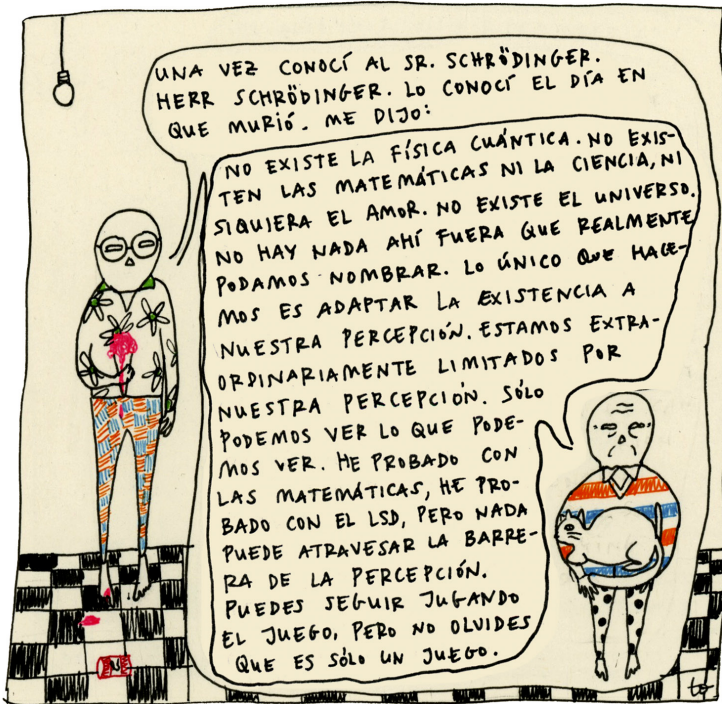 UNA VEZ CONOCÍ AL SR. SCHRÖDINGER.
HERR SCHRÖDINGER. LO CONOCÍ EL DÍA EN
QUE MURIÓ. ME DIJO:
NO EXISTE LA FÍSICA CUÁNTICA. NO EXIS-
TEN LAS MATEMÁTICAS NI LA CIENCIA, NI
SIQUIERA EL AMOR. NO EXISTE EL UNIVERSO.
NO HAY NADA AHÍ FUERA QUE REALMENTE
PODAMOS NOMBRAR. LO ÚNICO QUE HACE-
MOS ES ADAPTAR LA EXISTENCIA A
NUESTRA PERCEPCIÓN. ESTAMOS EXTRA-
ORDINARIAMENTE LIMITADOS POR
NUESTRA PERCEPCIÓN. SÓLO
PODEMOS VER LO QUE PODE-
MOS VER. HE PROBADO CON
LAS MATEMÁTICAS, HE PRO-
BADO CON EL LSD, PERO NADA
PUEDE ATRAVESAR LA BARRE-
RA DE LA PERCEPCIÓN.
PUEDES SEGUIR JUGANDO
EL JUEGO, PERO NO OLVIDES
QUE ES SÓLO UN JUEGO.
N
to